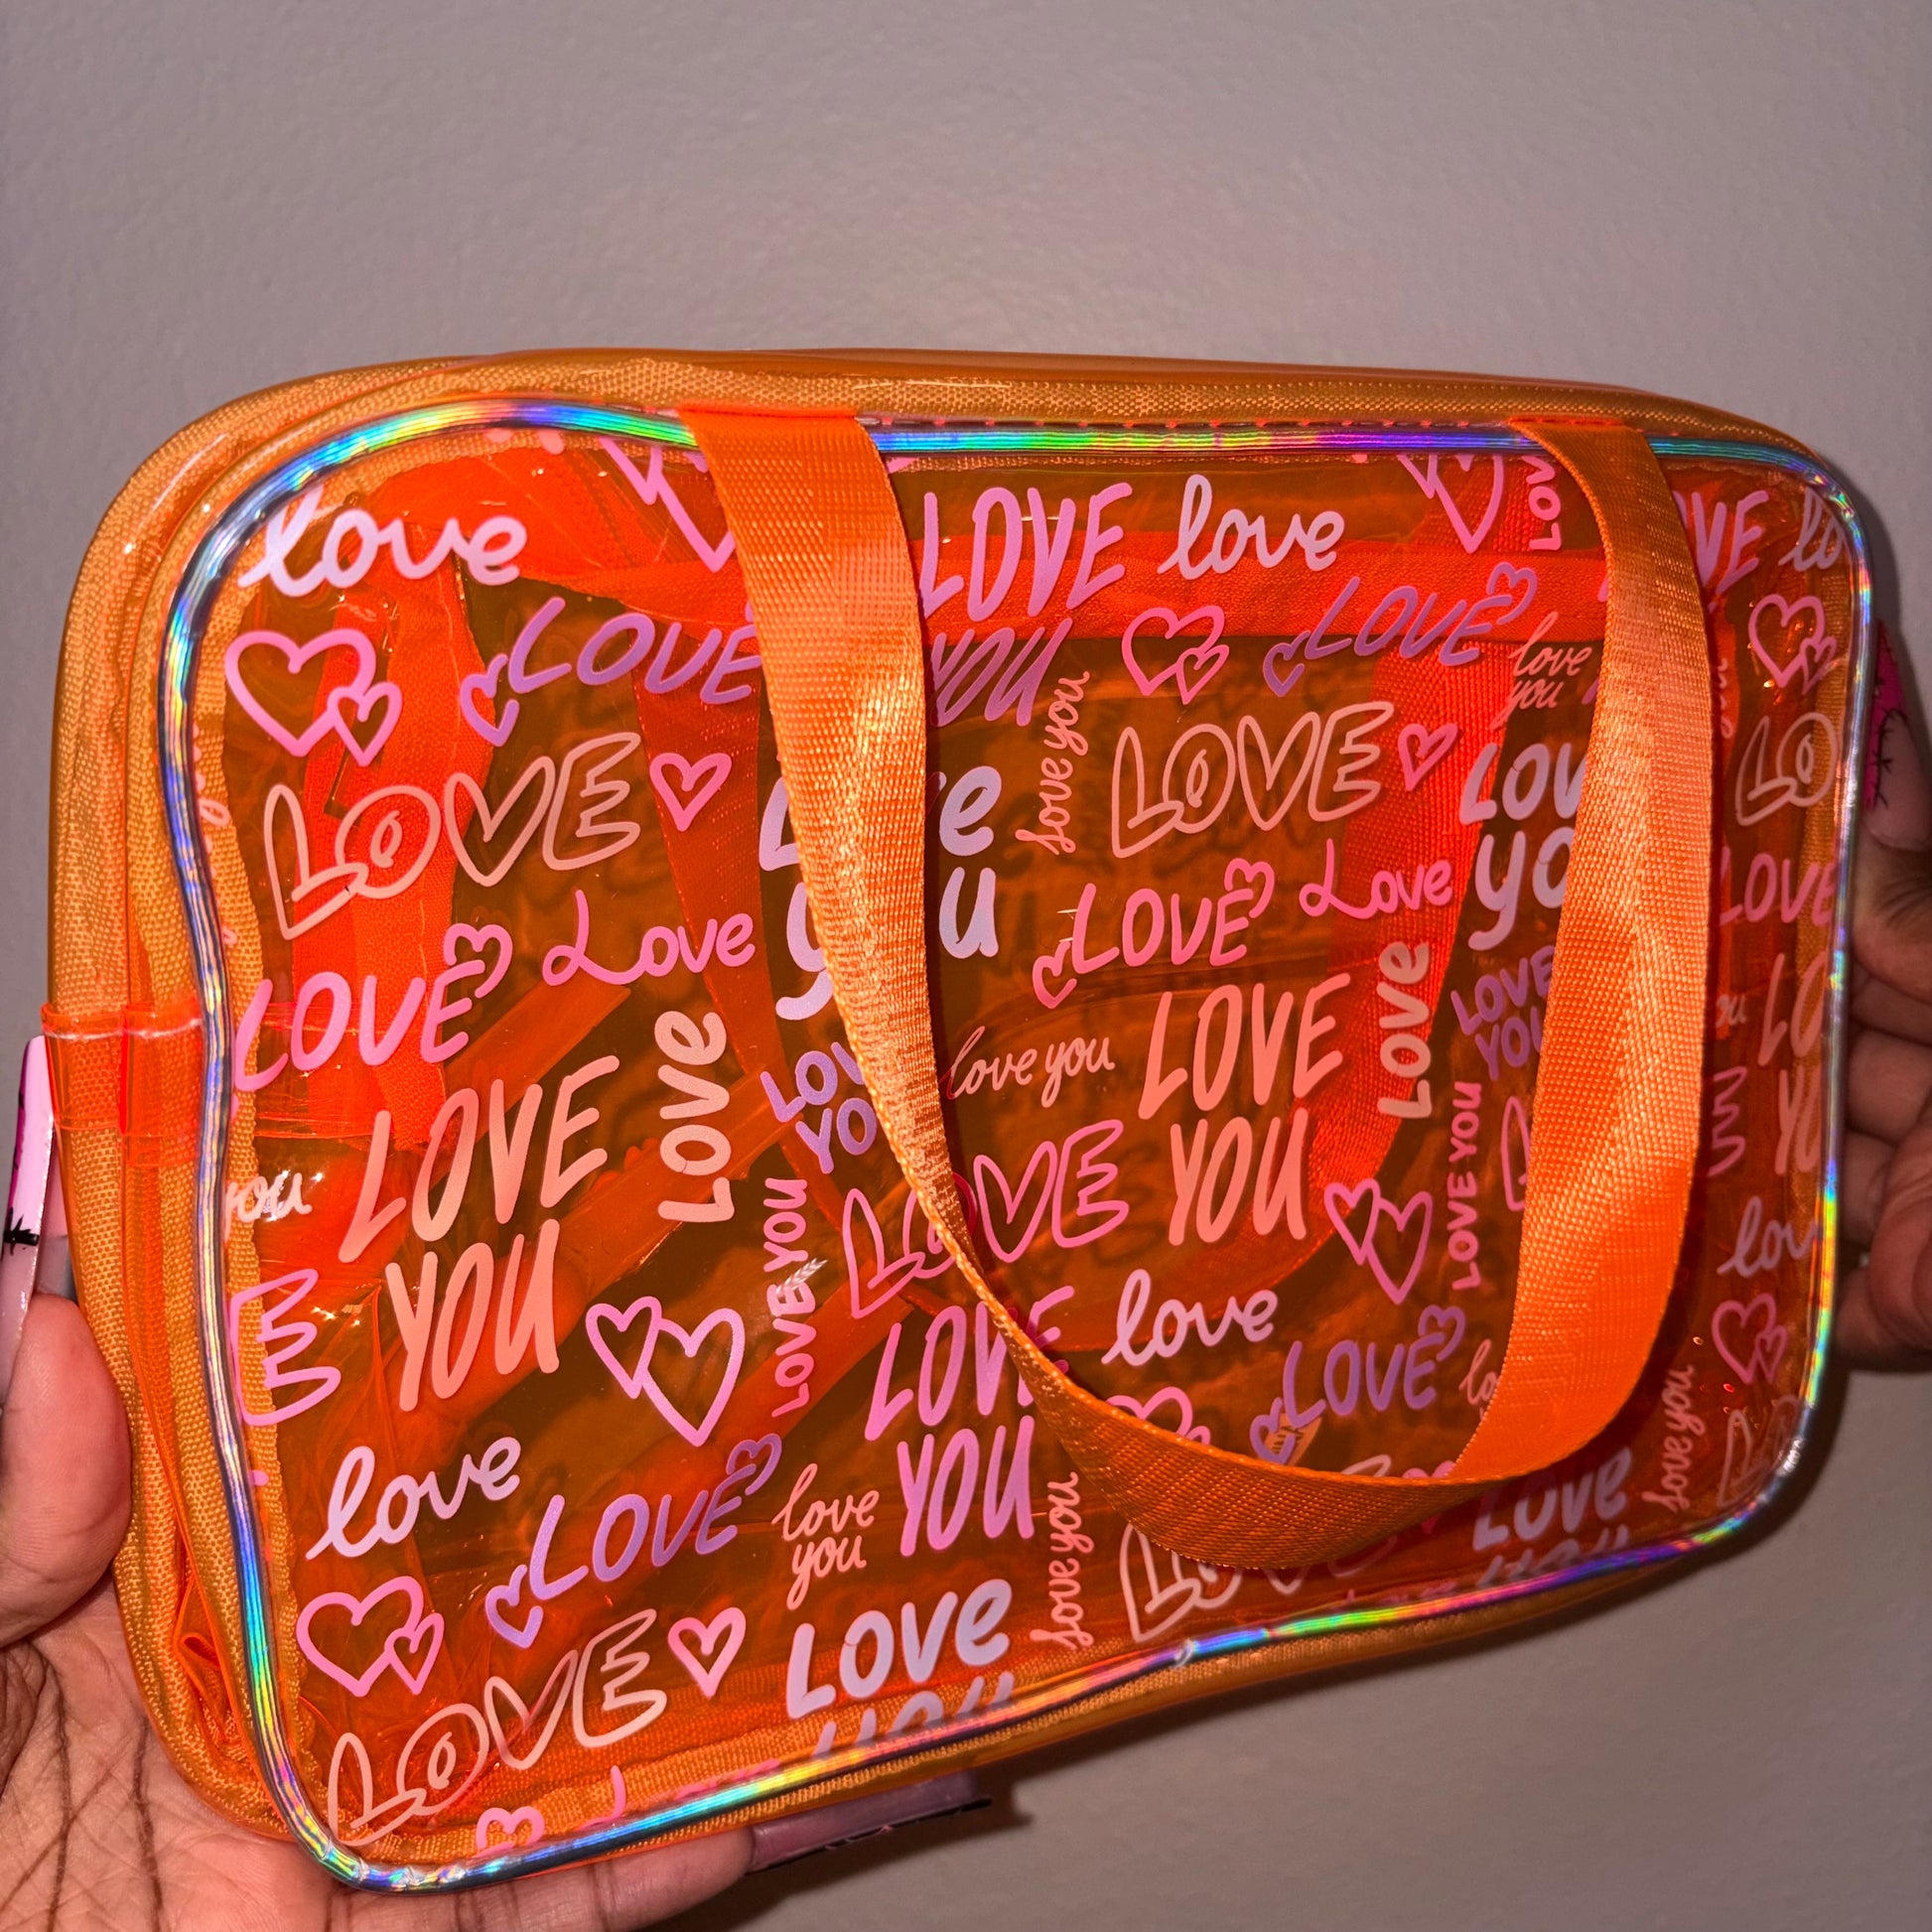 love
LOVE
love
LOVE
LOVE
YOU
LOVE
love
you
love you
LOVE
LOVE
LOVE
Love
LOVE
Love
LOVE
LOVE
YOU
LOVE
love you
LOVE
YOU
LOVE
LOVE
YOU
LOVE YOU
LOVE YOU
you
LOVE
love
LOVE
YOU
love
LOVE
LOVE
love
you
love you
love you
LOVE
Love
you
Love